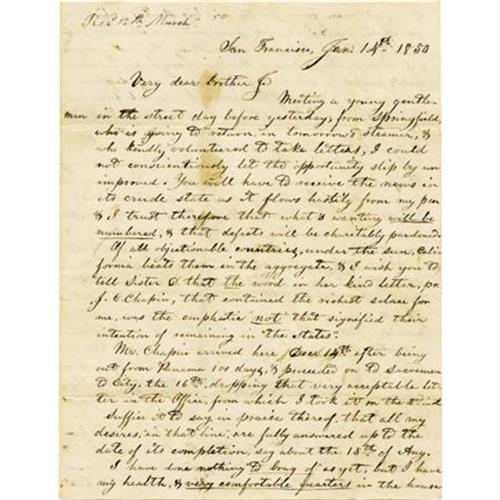 Rec'd 12th March 50
San Francisco, Jan: 14th 1850
Very dear brother J.
Meeting a young gentle-
man in the street day before yesterday, from Springfield,
who is going to return, in tomorrow's steamer, &
who kindly volunteered to take letters, I could
not conscientiously let the opportunity slip by un-
improved. You will have to receive the news in
its crude state as it flows hastily from my pen
& I trust therefore that what's wanting will be
numbered, & that defects will be charitably pardoned.
Of all objectionable countries, under the sun, Cali-
fornia beats them in the aggregate, & I wish you to
tell Sister that the word in her kind letter, pr.
J. C. Chapin, that contained the richest solace for
me, was the emphatic not that signified their
intention of remaining in "the States".
Mr. Chapin arrived here Dec. 14th after being
out from Panama 100 days, & proceeded on to Sacramen-
to City, the 16th, dropping that very acceptable let-
ter in the Office, from which I took it on the
Suffice it to say in praise thereof, that all my
desires, in that line, are fully answered up to the
date of its completion, say about the 18th of Aug.
I have done nothing to brag of as yet, but I have
my health, & very comfortable quarters in the house